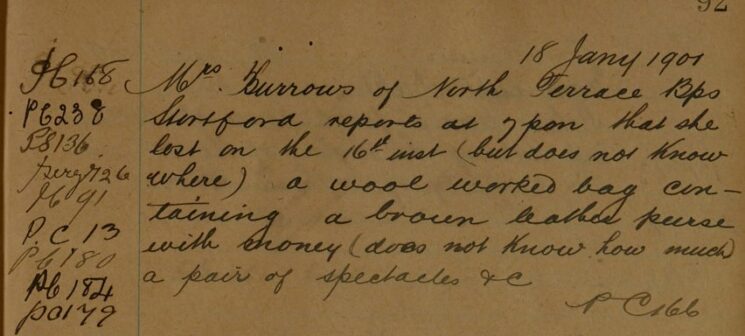 92
18 Jany 1901
Mrs. Burrows of North Terrace Bps
Stortford reports at 7pm that she
lost on the 16th inst (but does not know
where) a wool worked bag con-
taining a brown leather purse
with money (does not know how much)
a pair of spectacles &c
PC166
PC168
PC238
PS136
Sergt 126
PC 91
P.C 13
PC 180
PC 184
PC179